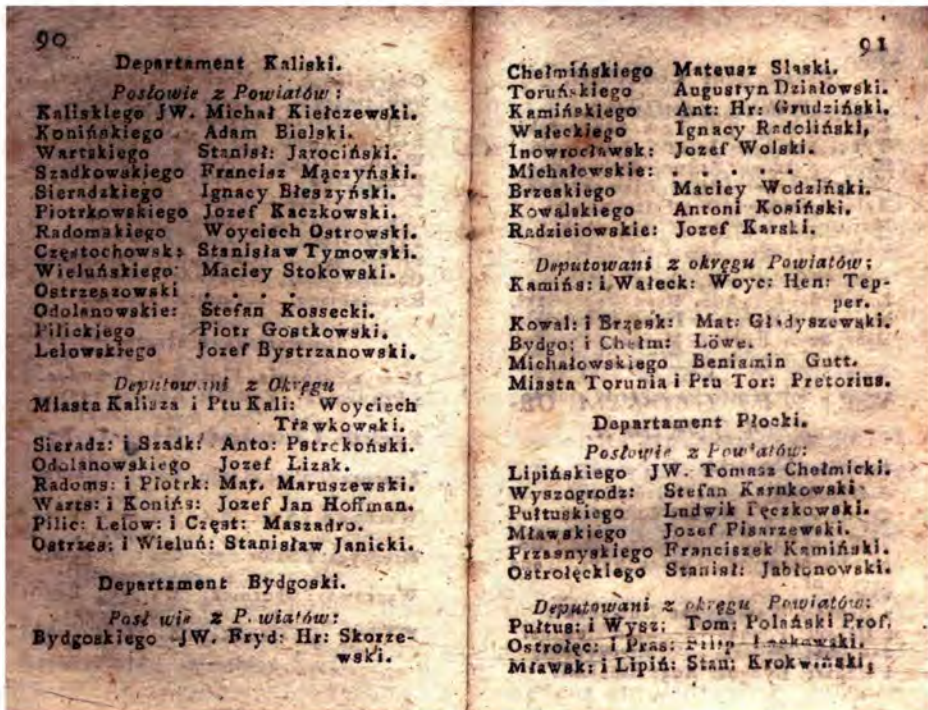 90
Departament Kaliski.
Posłowie z Powiatów:
Kaliskiego JW. Michał Kiełczewski.
Konińskiego Adam Bielski.
Wartskiego Stanisł: Jarociński.
Szadkowskiego Francisz Mączyński.
Sieradzkiego Ignacy Błeszyński.
Piotrkowskiego Jozef Kaczkowski.
Radomskiego Woyciech Ostrowski.
Częstochowsk: Stanisław Tymowski.
Wieluńskiego Maciey Stokowski.
Ostrzeszowski . . . .
Odolanowskie: Stefan Kossecki.
Pilickiego Piotr Gostkowski.
Lelowskiego Jozef Bystrzanowski.
Deputowani z Okręgu
Miasta Kalisza i Ptu Kali: Woyciech
Trawkowski.
Sieradz: i Szadk: Anto: Pstrokoński.
Odolanowskiego Jozef Lizak.
Radoms: i Piotrk: Mat. Maruszewski.
Warts: i Konińs: Jozef Jan Hoffman.
Pilic: Lelow: i Częst: Maszadro.
Ostrzes: i Wieluń: Stanisław Janicki.
Departament Bydgoski.
Posł wie z P. wiatów:
Bydgoskiego JW. Fryd: Hr: Skorze-
wski.
91
Chełmińskiego Mateusz Slaski.
Toruńskiego Augustyn Działowski.
Kamińskiego Ant: Hr: Grudziński.
Wałeckiego Ignacy Radoliński,
Inowrocławsk: Jozef Wolski.
Michałowskie: . . . . .
Brzeskiego Maciey Wodziński.
Kowalskiego Antoni Kosiński.
Radzieiowskie: Jozef Karski.
Deputowani z okręgu Powiatów;
Kamińs: i Wałeck: Woyc: Hen: Tep-
per.
Kowal: i Brzesk: Mat: Gładyszewski.
Bydgo: i Chełm: Löwe.
Michałowskiego Beniamin Gutt.
Miasta Torunia i Ptu Tor: Pretorius.
Departament Płocki.
Posłowie z Powiatów:
Lipińskiego JW. Tomasz Chełmicki.
Wyszogrodz: Stefan Karnkowski
Pułtuskiego Ludwik Tęczkowski.
Mławskiego Jozef Pisarzewski.
Przasnyskiego Franciszek Kamiński.
Ostrołęckiego Stanisł: Jabłonowski.
Deputowani z okręgu Powiatów:
Pułtus: i Wysz: Tom; Polański Prof.
Ostrołęc: i Pras: Filip
Mławsk: i Lipiń: Stan: Krokwiński,